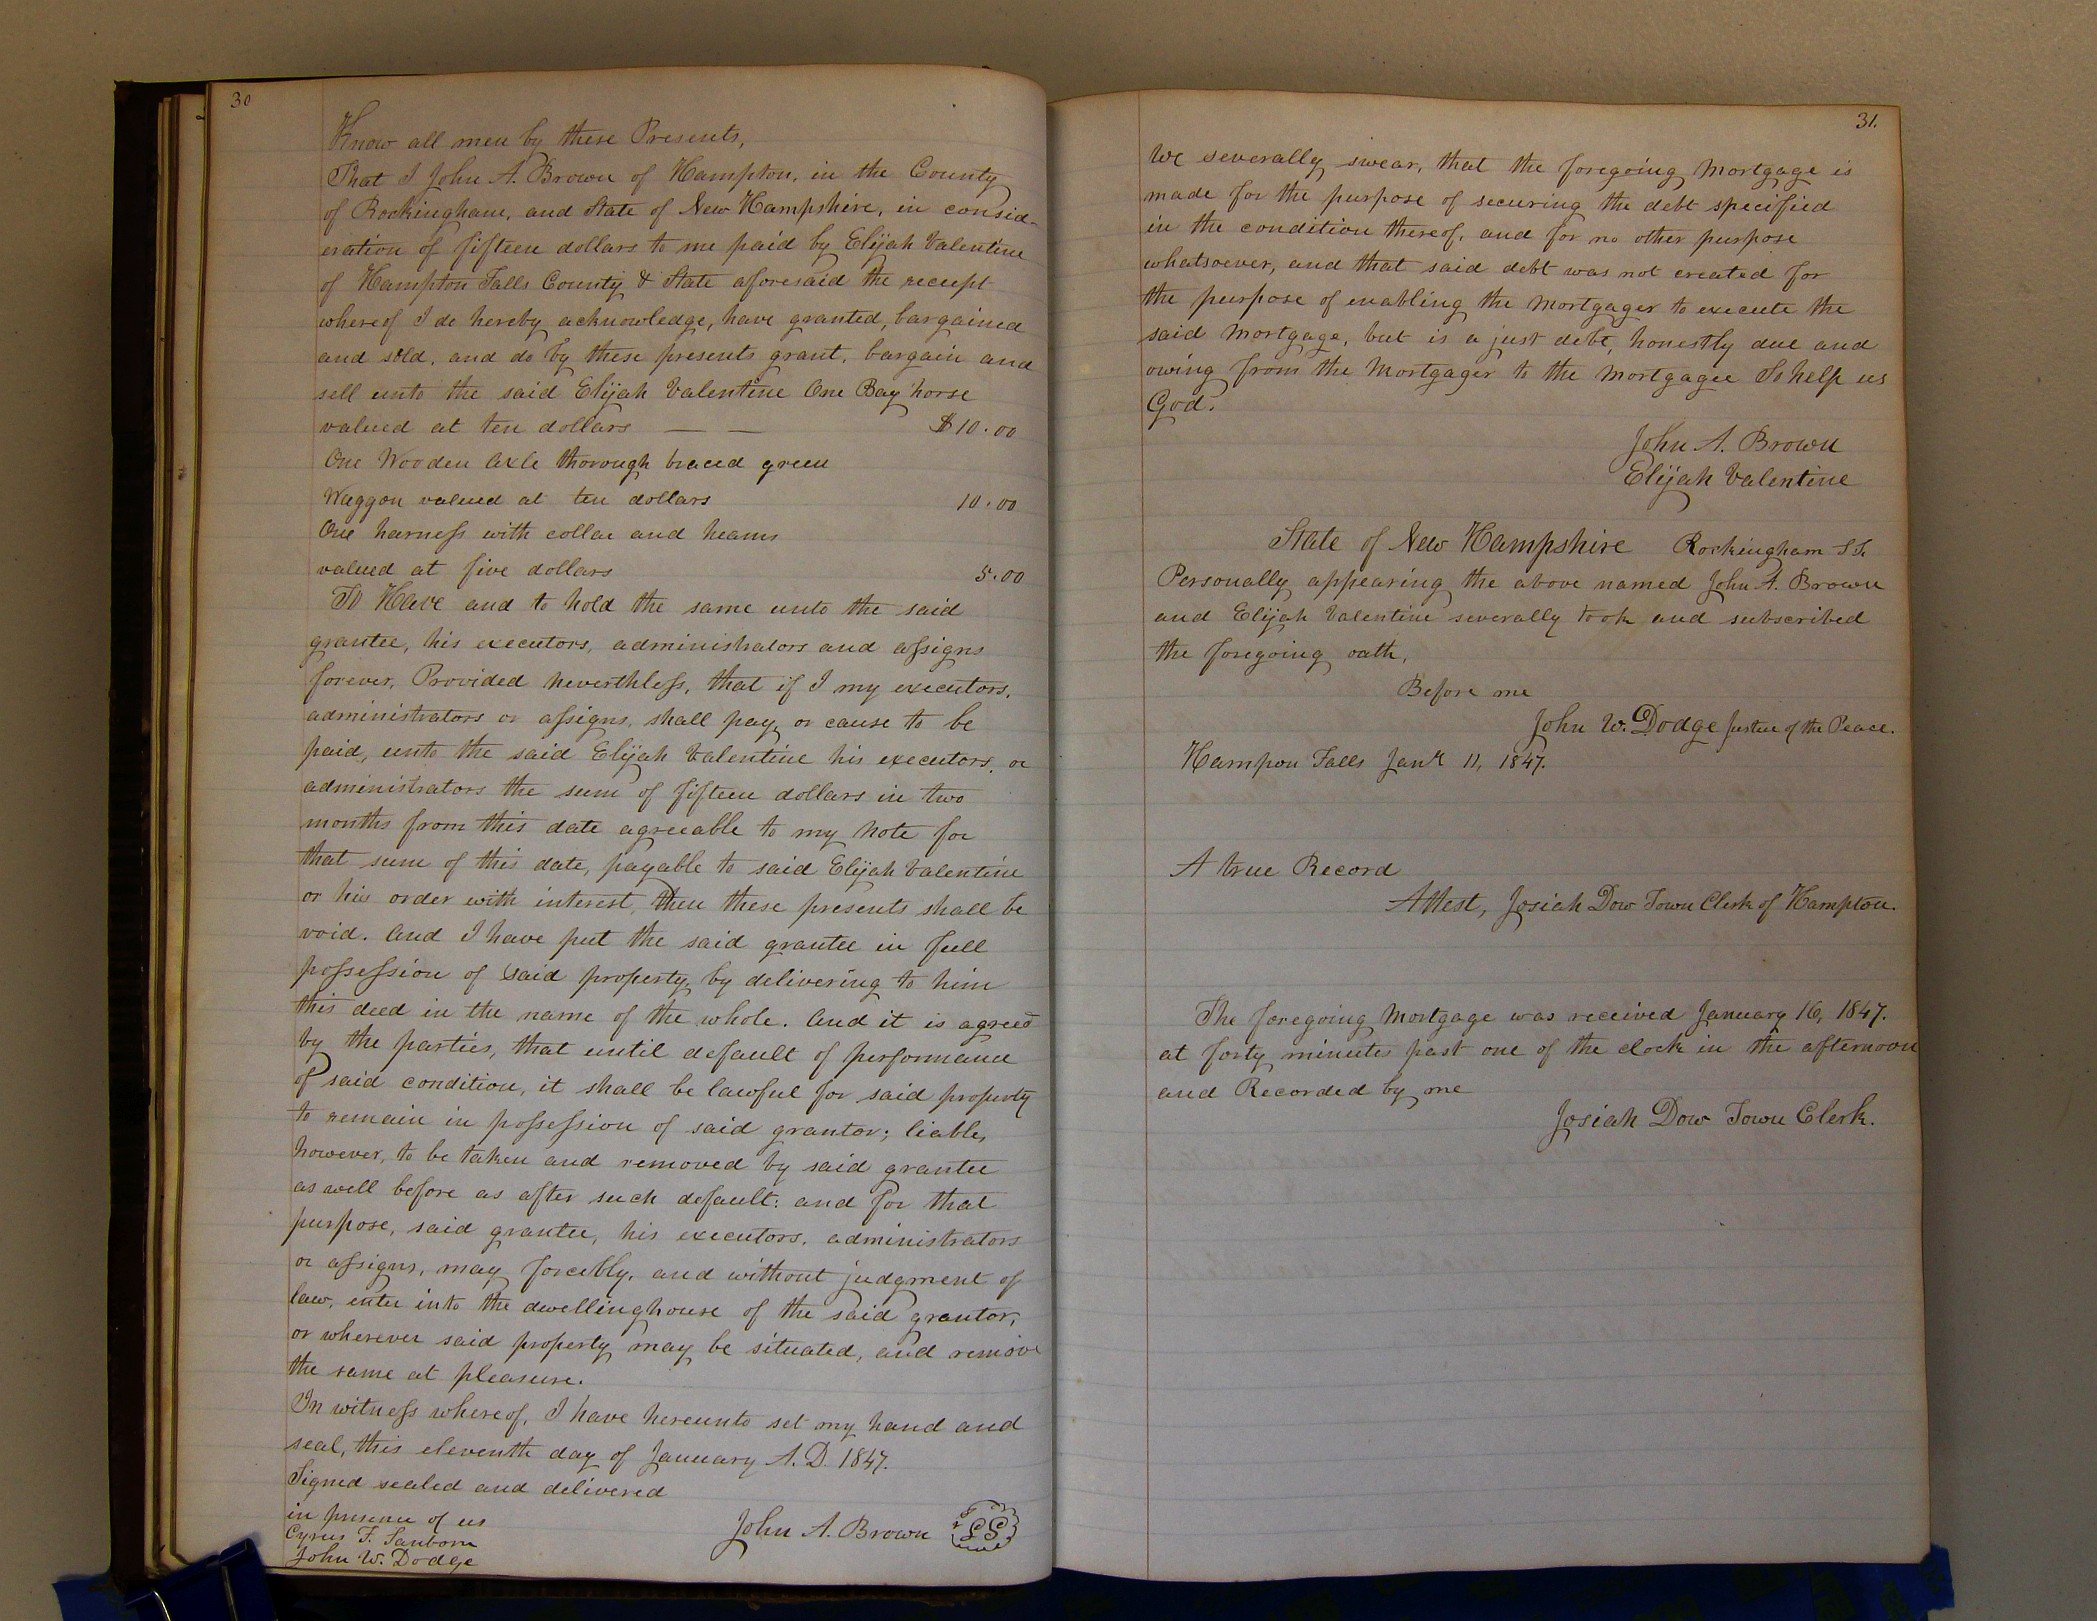 30
Know all men by these Presents,
That I John A. Brown of Hampton, in the County
of Rockingham, and State of New Hampshire, in consid-
eration of fifteen dollars to me paid by Elijah Valentine
of Hampton Falls County & State aforesaid the receipt
whereof I do hereby acknowledge, have granted, bargained
and sold, and do by these presents grant, bargain and
sell unto the said Elijah Valentine One Bay horse
valued at ten dollars — — $10.00
One Wooden axle thorough braced green
Waggon valued at ten dollars 10.00
One harness with collar and heams
valued at five dollars 5.00
To Have and to hold the same unto the said
grantee, his executors, administrators and assigns
forever, Provided neverthless, that if I my executors,
administrators or assigns, shall pay, or cause to be
paid, unto the said Elijah Valentine his executors, or
administrators the sum of fifteen dollars in two
months from this date agreeable to my note for
that sum of this date, payable to said Elijah Valentine
or his order with interest, then these presents shall be
void. And I have put the said grantee in full
possession of said property, by delivering to him
this deed in the name of the whole. And it is agreed
by the parties, that until default of performance
of said condition, it shall be lawful for said property
to remain in possession of said grantor; liable,
however, to be taken and removed by said grantee
as well before as after such default: and for that
purpose, said grantee, his executors, administrators
or assigns, may forcibly, and without judgment of
law, enter into the dwellinghouse of the said grantor,
or wherever said property may be situated, and remove
the same at pleasure.
In witness whereof, I have hereunto set my hand and
seal, this eleventh day of January A.D. 1847.
Signed sealed and delivered
in presence of us
Cyrus F. Sanborn
John W. Dodge
John A. Brown LS
31.
We severally swear, that the foregoing mortgage is
made for the purpose of securing the debt specified
in the condition thereof, and for no other purpose
whatsoever, and that said debt was not created for
the purpose of enabling the mortgager to execute the
said mortgage, but is a just debt, honestly due and
owing from the Mortgager to the mortgagee So help us
God.
John A. Brown
Elijah Valentine
State of New Hampshire Rockingham SS.
Personally appearing the above named John A. Brown
and Elijah Valentine severally took and subscribed
the foregoing oath,
Before me
John W. Dodge Justice of the Peace.
Hampon Falls Jany 11, 1847.
A true Record
Attest, Josiah Dow Town Clerk of Hampton.
The foregoing mortgage was received January 16, 1847.
at forty minutes past one of the clock in the afternoon
and Recorded by me
Josiah Dow Town Clerk.